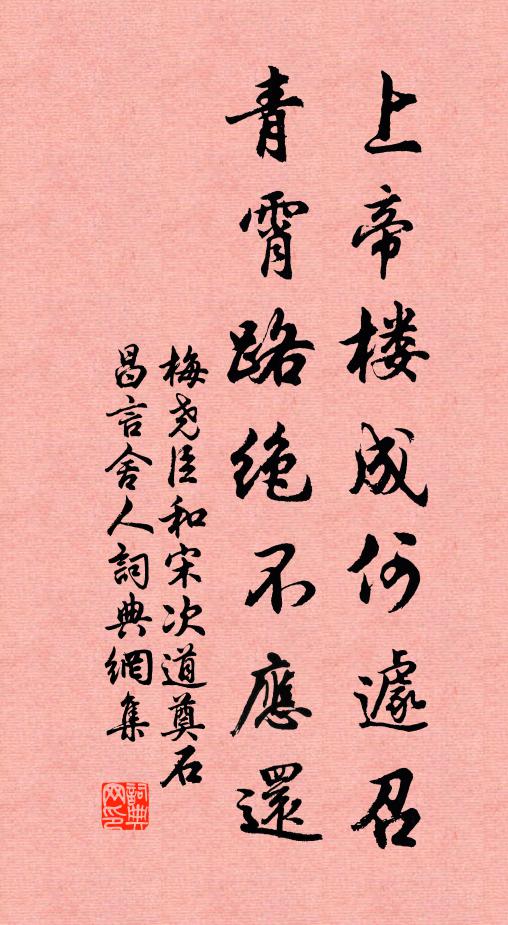 上帝楼成何遽召
青霄路绝不應還
梅尧臣和宋次道奠石
昌言舍人詞典網集
詞典网印